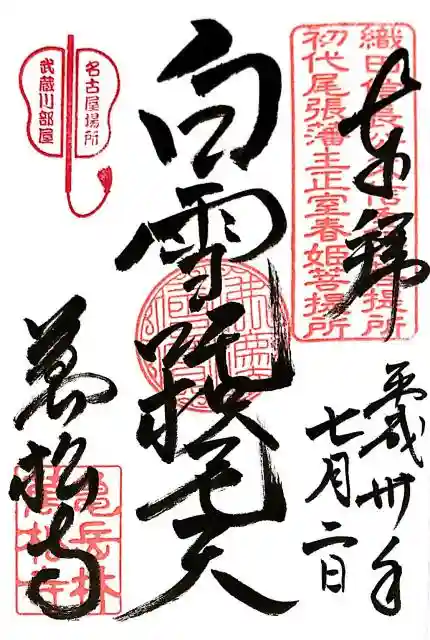 奉拝
織田信長
菩提所
初代尾張藩主正室春姫菩提所
平成卅年
七月二日
白雪吒枳尼天
名古屋場所
武蔵川部屋
萬松寺
亀岳林
萬松寺